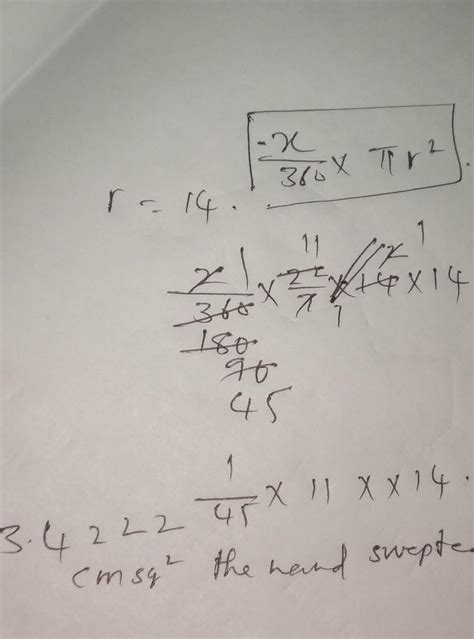 x/360 × πr².
r = 14.
11 1
x 1/360 × 22/7 × 14 × 14
180
90
45
1/45 × 11 × × 14.
3.4222
cmsq² the hand swept